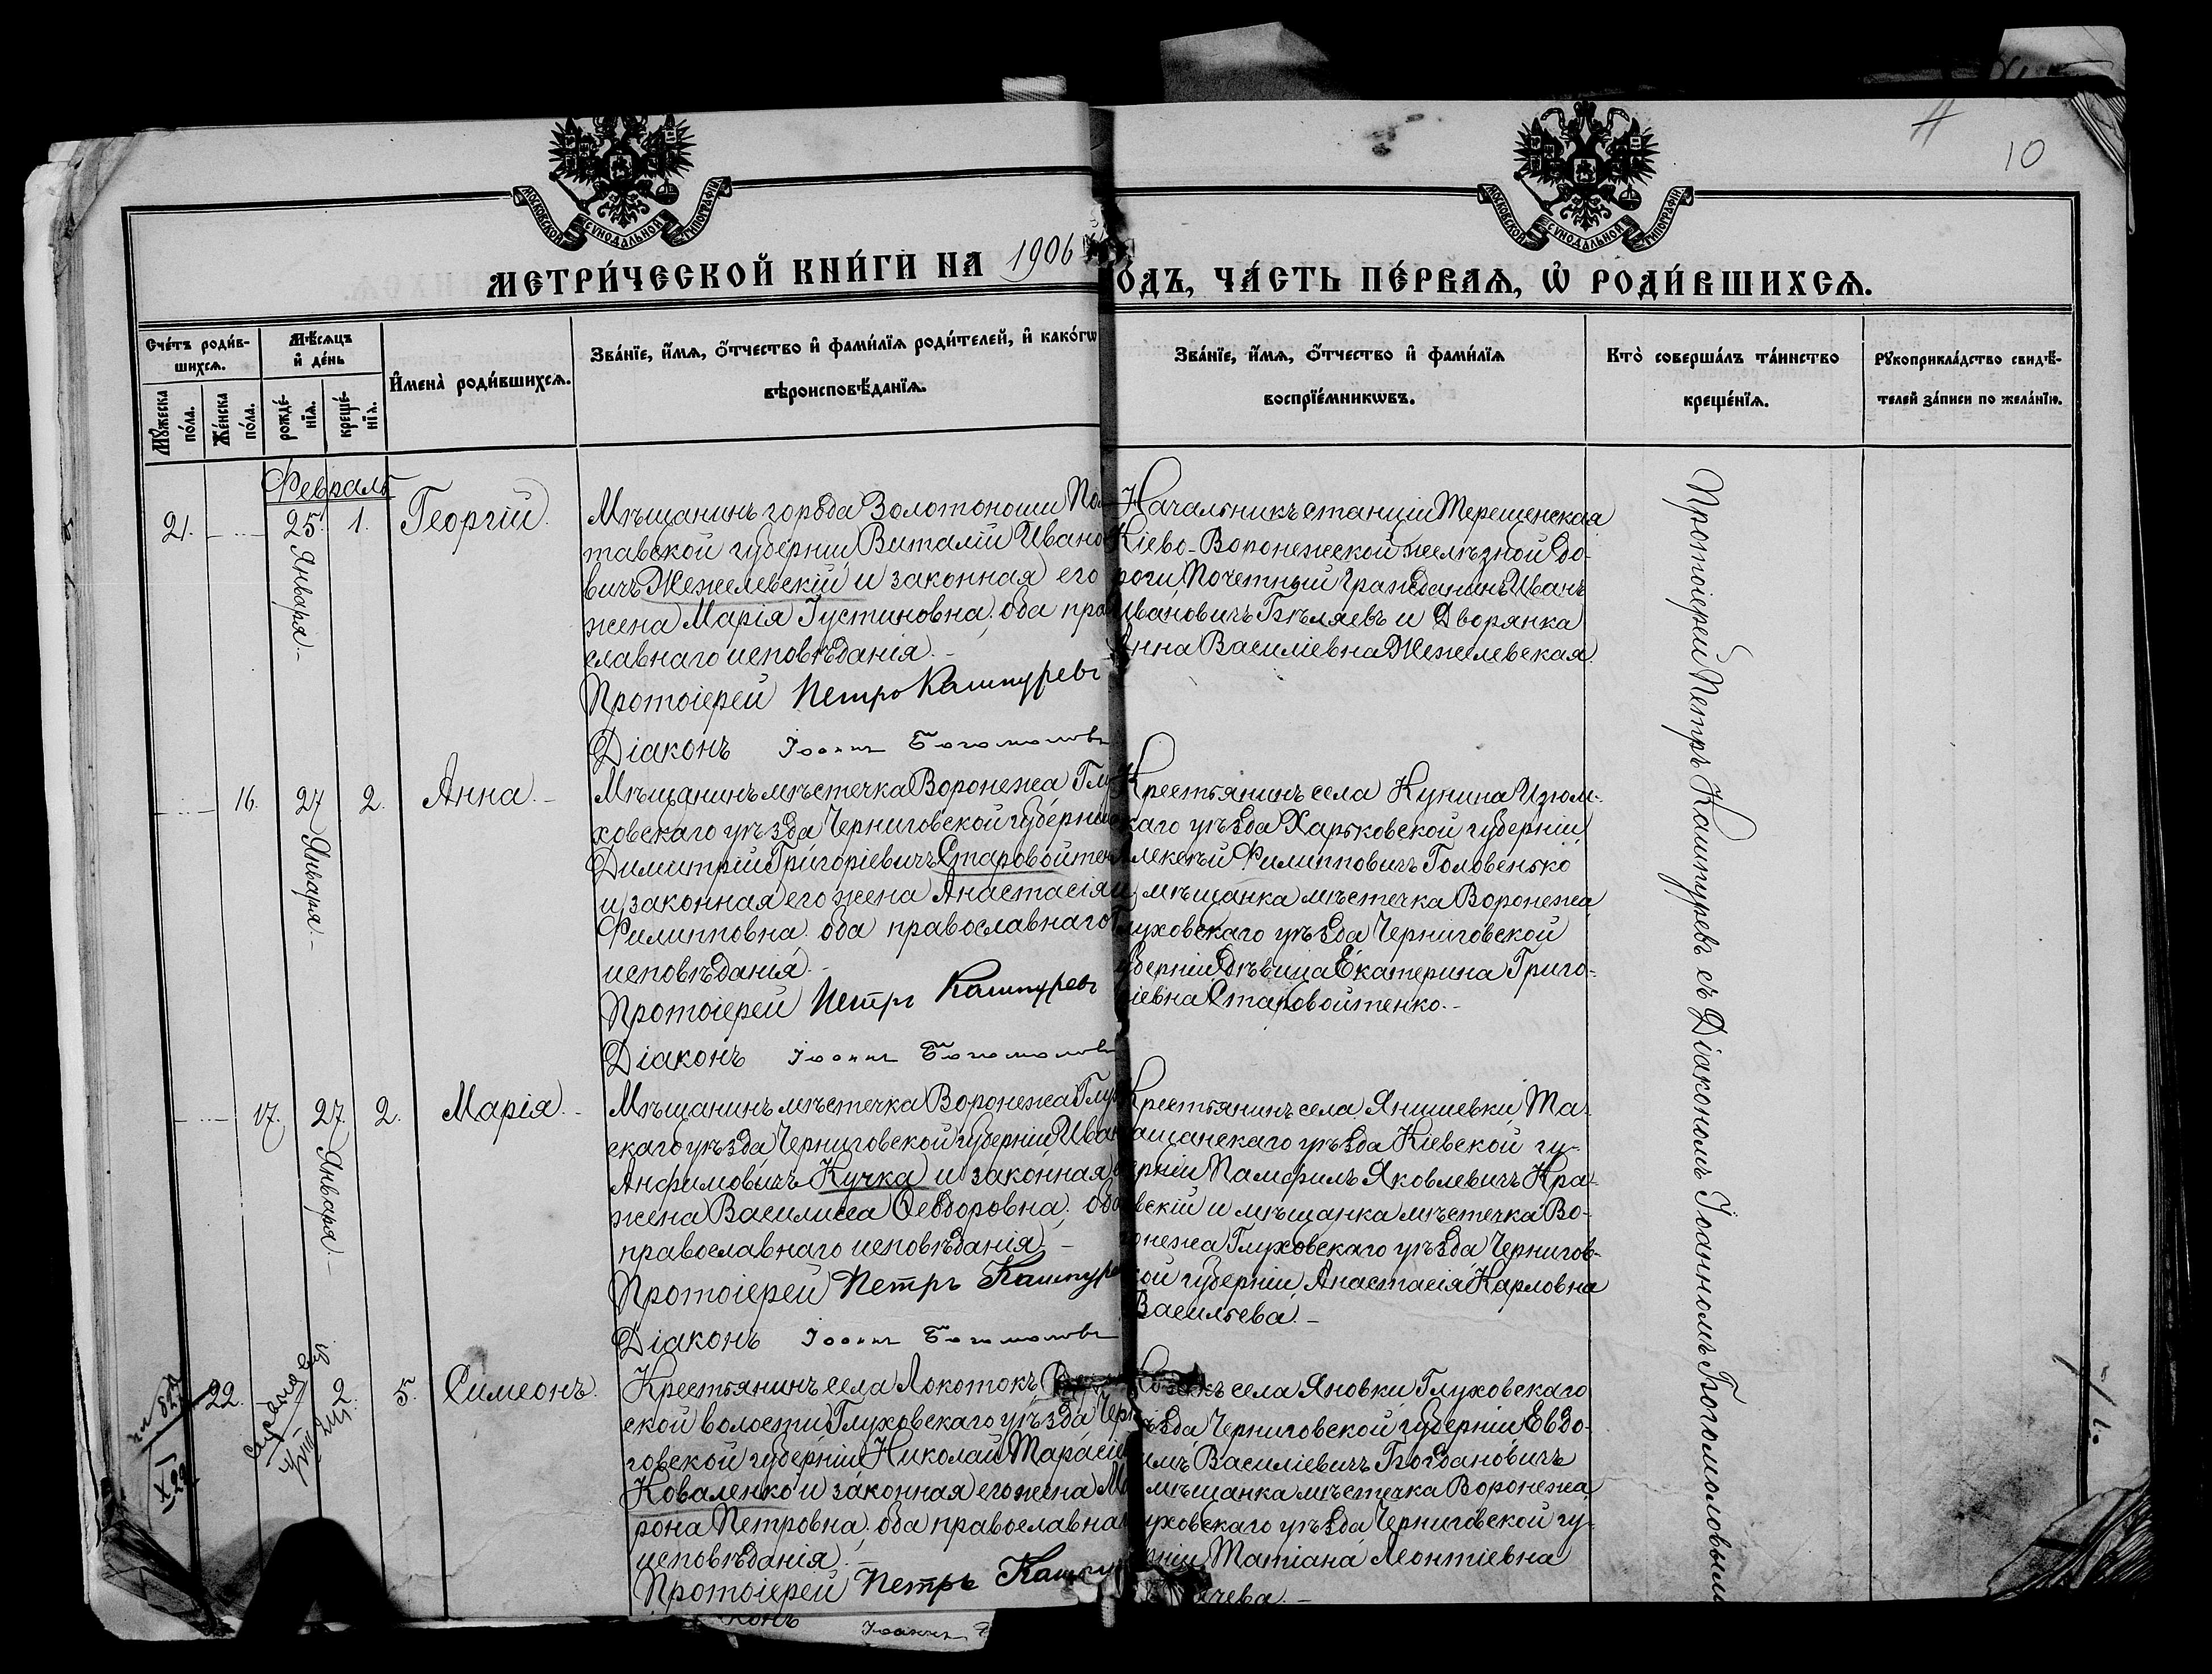 10
МОСКОВСКОЙ СѴНОДАЛЬНОЙ ТИПОГРАФІИ
МОСКОВСКОЙ СѴНОДАЛЬНОЙ ТИПОГРАФІИ
МЕТРИ́ЧЕСКОЙ КНИ́ГИ НА 1906
ОДЪ, ЧА́СТЬ ПЕ́РВАѦ, Ѡ҆ РОДИ́ВШИХСѦ.
Сче́тъ роди́в-
шихсѧ.
Мꙋ́жеска
по́ла.
Же́нска
по́ла.
Мѣ́сѧцъ
и҆ де́нь
рожде́-
нїѧ.
креще́-
нїѧ.
И҆мена̀ роди́вшихсѧ.
Зва́нїе, и҆́мѧ, ѻ҆́тчество и҆ фами́лїѧ роди́телей, и҆ како́гѡ
вѣроисповѣ́данїѧ.
Зва́нїе, и҆́мѧ, ѻ҆́тчество и҆ фами́лїѧ
воспрїе́мникѡвъ.
Кто̀ соверша́лъ та́инство
креще́нїѧ.
Рꙋкоприкла́дство свидѣ́-
телей за́писи по жела́нїю.
Февраль
21. 25 Января 1. Георгій.
Мѣщанинъ города Золотоноши Пол-
тавской губерніи, Виталій Ивано
вичъ Межелевскій и законная его
жена Марія Іустиновна; оба пра
славнаго исповѣданія.
Протоіерей Петръ Кашпуревъ
Діаконъ Іоаннъ Богомоловъ
Начальникъ станціи Терещенская
Кіево-Воронежской желѣзной до-
роги, Почетный Гражданинъ Иванъ
Ивановичъ Бѣляевъ и Дворянка
Анна Василіевна Межелевская.
16. 27 Января 2. Анна.
Мѣщанинъ мѣстечка Воронежа Глу
ховскаго уѣзда Черниговской губерніи
Димитрій Григоріевичъ Старовойтен
и законная его жена Анастасія
Филипповна; оба православнаго
исповѣданія.
Протоіерей Петръ Кашпуревъ
Діаконъ Іоаннъ Богомоловъ
Крестьянинъ села Кунина Изюм-
скаго уѣзда Харьковской губерніи,
Алексѣй Филипповичъ Головенько
и мѣщанка мѣстечка Воронежа
Глуховскаго уѣзда Черниговской
губерніи дѣвица Екатерина Григо-
ріевна Старовойтенко.
17. 27. Января 2. Марія.
Мѣщанинъ мѣстечка Воронежа Глух
скаго уѣзда Черниговской губерніи Иван
Анфимовичъ Кучка и законная
жена Василисса Ѳеодоровна; оба
православнаго исповѣданія.
Протоіерей Петръ Кашпуре
Діаконъ Іоаннъ Богомоловъ
Крестьянинъ села Янишевки Та-
ращанскаго уѣзда Кіевской гу-
берніи Памфилъ Яковлевичъ Кра-
вскій и мѣщанка мѣстечка Во-
ронежа Глуховскаго уѣзда Чернигов-
ской губерніи, Анастасія Карловна
Васильева.
22. 2 5. Симеонъ.
Крестьянинъ села Локотокъ
ской волости Глуховскаго уѣзда Черн
говской губерніи Николай Тарасіе
Коваленко и законная его жена Ма
рона Петровна; оба православна
исповѣданія.
Протоіерей Петръ Кашпу
конъ Іоаннъ
Козакъ села Яновки, Глуховскаго
уѣзда Черниговской губерніи, Евдо-
кимъ Василіевичъ Богдановичъ
и мѣщанка мѣстечка Воронежа
Глуховскаго уѣзда Черниговской гу-
берніи, Татіана Леонтіевна
чева.
Протоіерей Петръ Кашпуревъ съ Діакономъ Іоанномъ Богомоловымъ